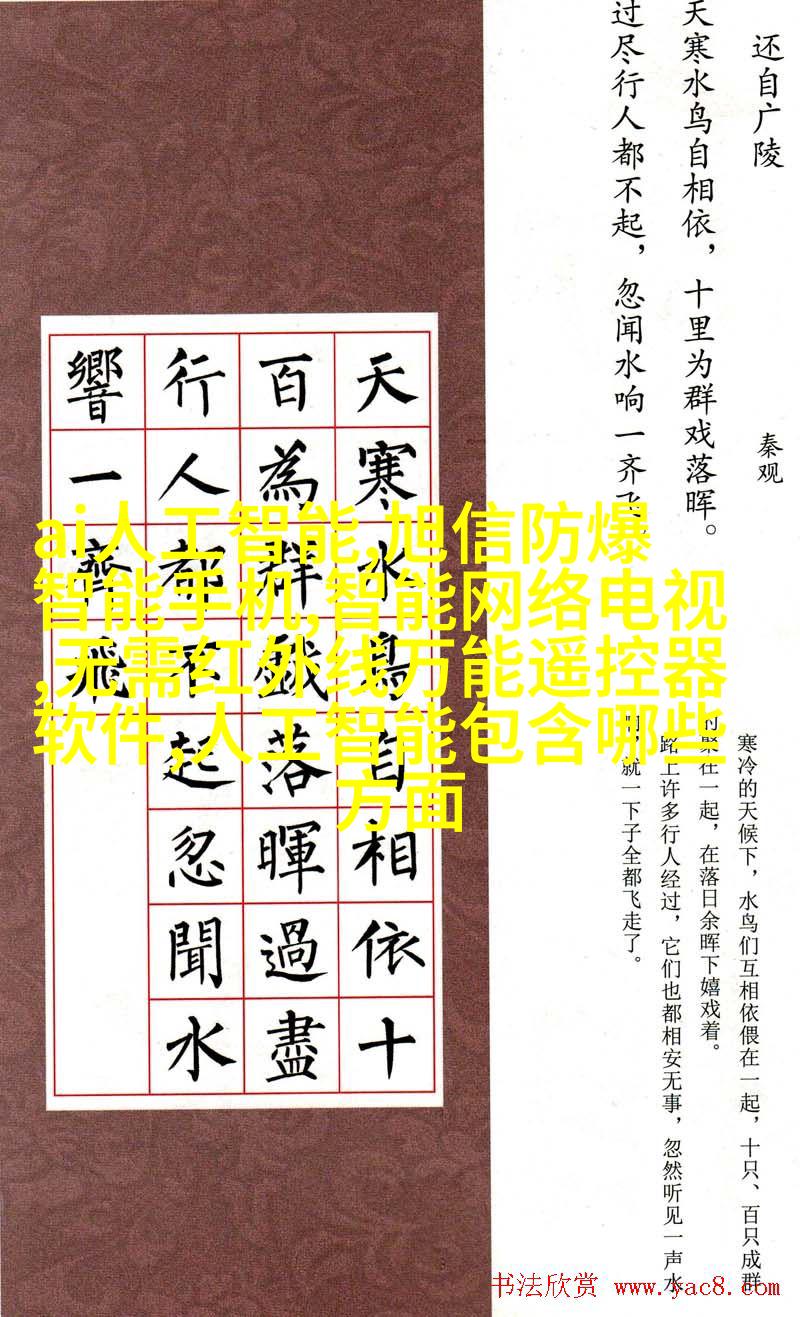 还自广陵
秦观
天寒水鸟自相依，十里为群戏落晖。
过尽行人都不起，忽闻水响一齐飞
寒冷的天候下，水鸟们互相依偎在一起，十只、百只成群
的聚在一起，在落日余晖下嬉戏着。
路上许多行人经过，它们也都相安无事，忽然听见一声水
，就一下子全都飞走了。
天寒水鳥自相依十
百為群戲落暉過盡
行人都不起忽聞水
響一齊飛
ai人工智能,旭信防爆
智能手机,智能网络电视
,无需红外线万能遥控器
软件,人工智能包含哪些
方面
书法欣赏 www.yac8.com